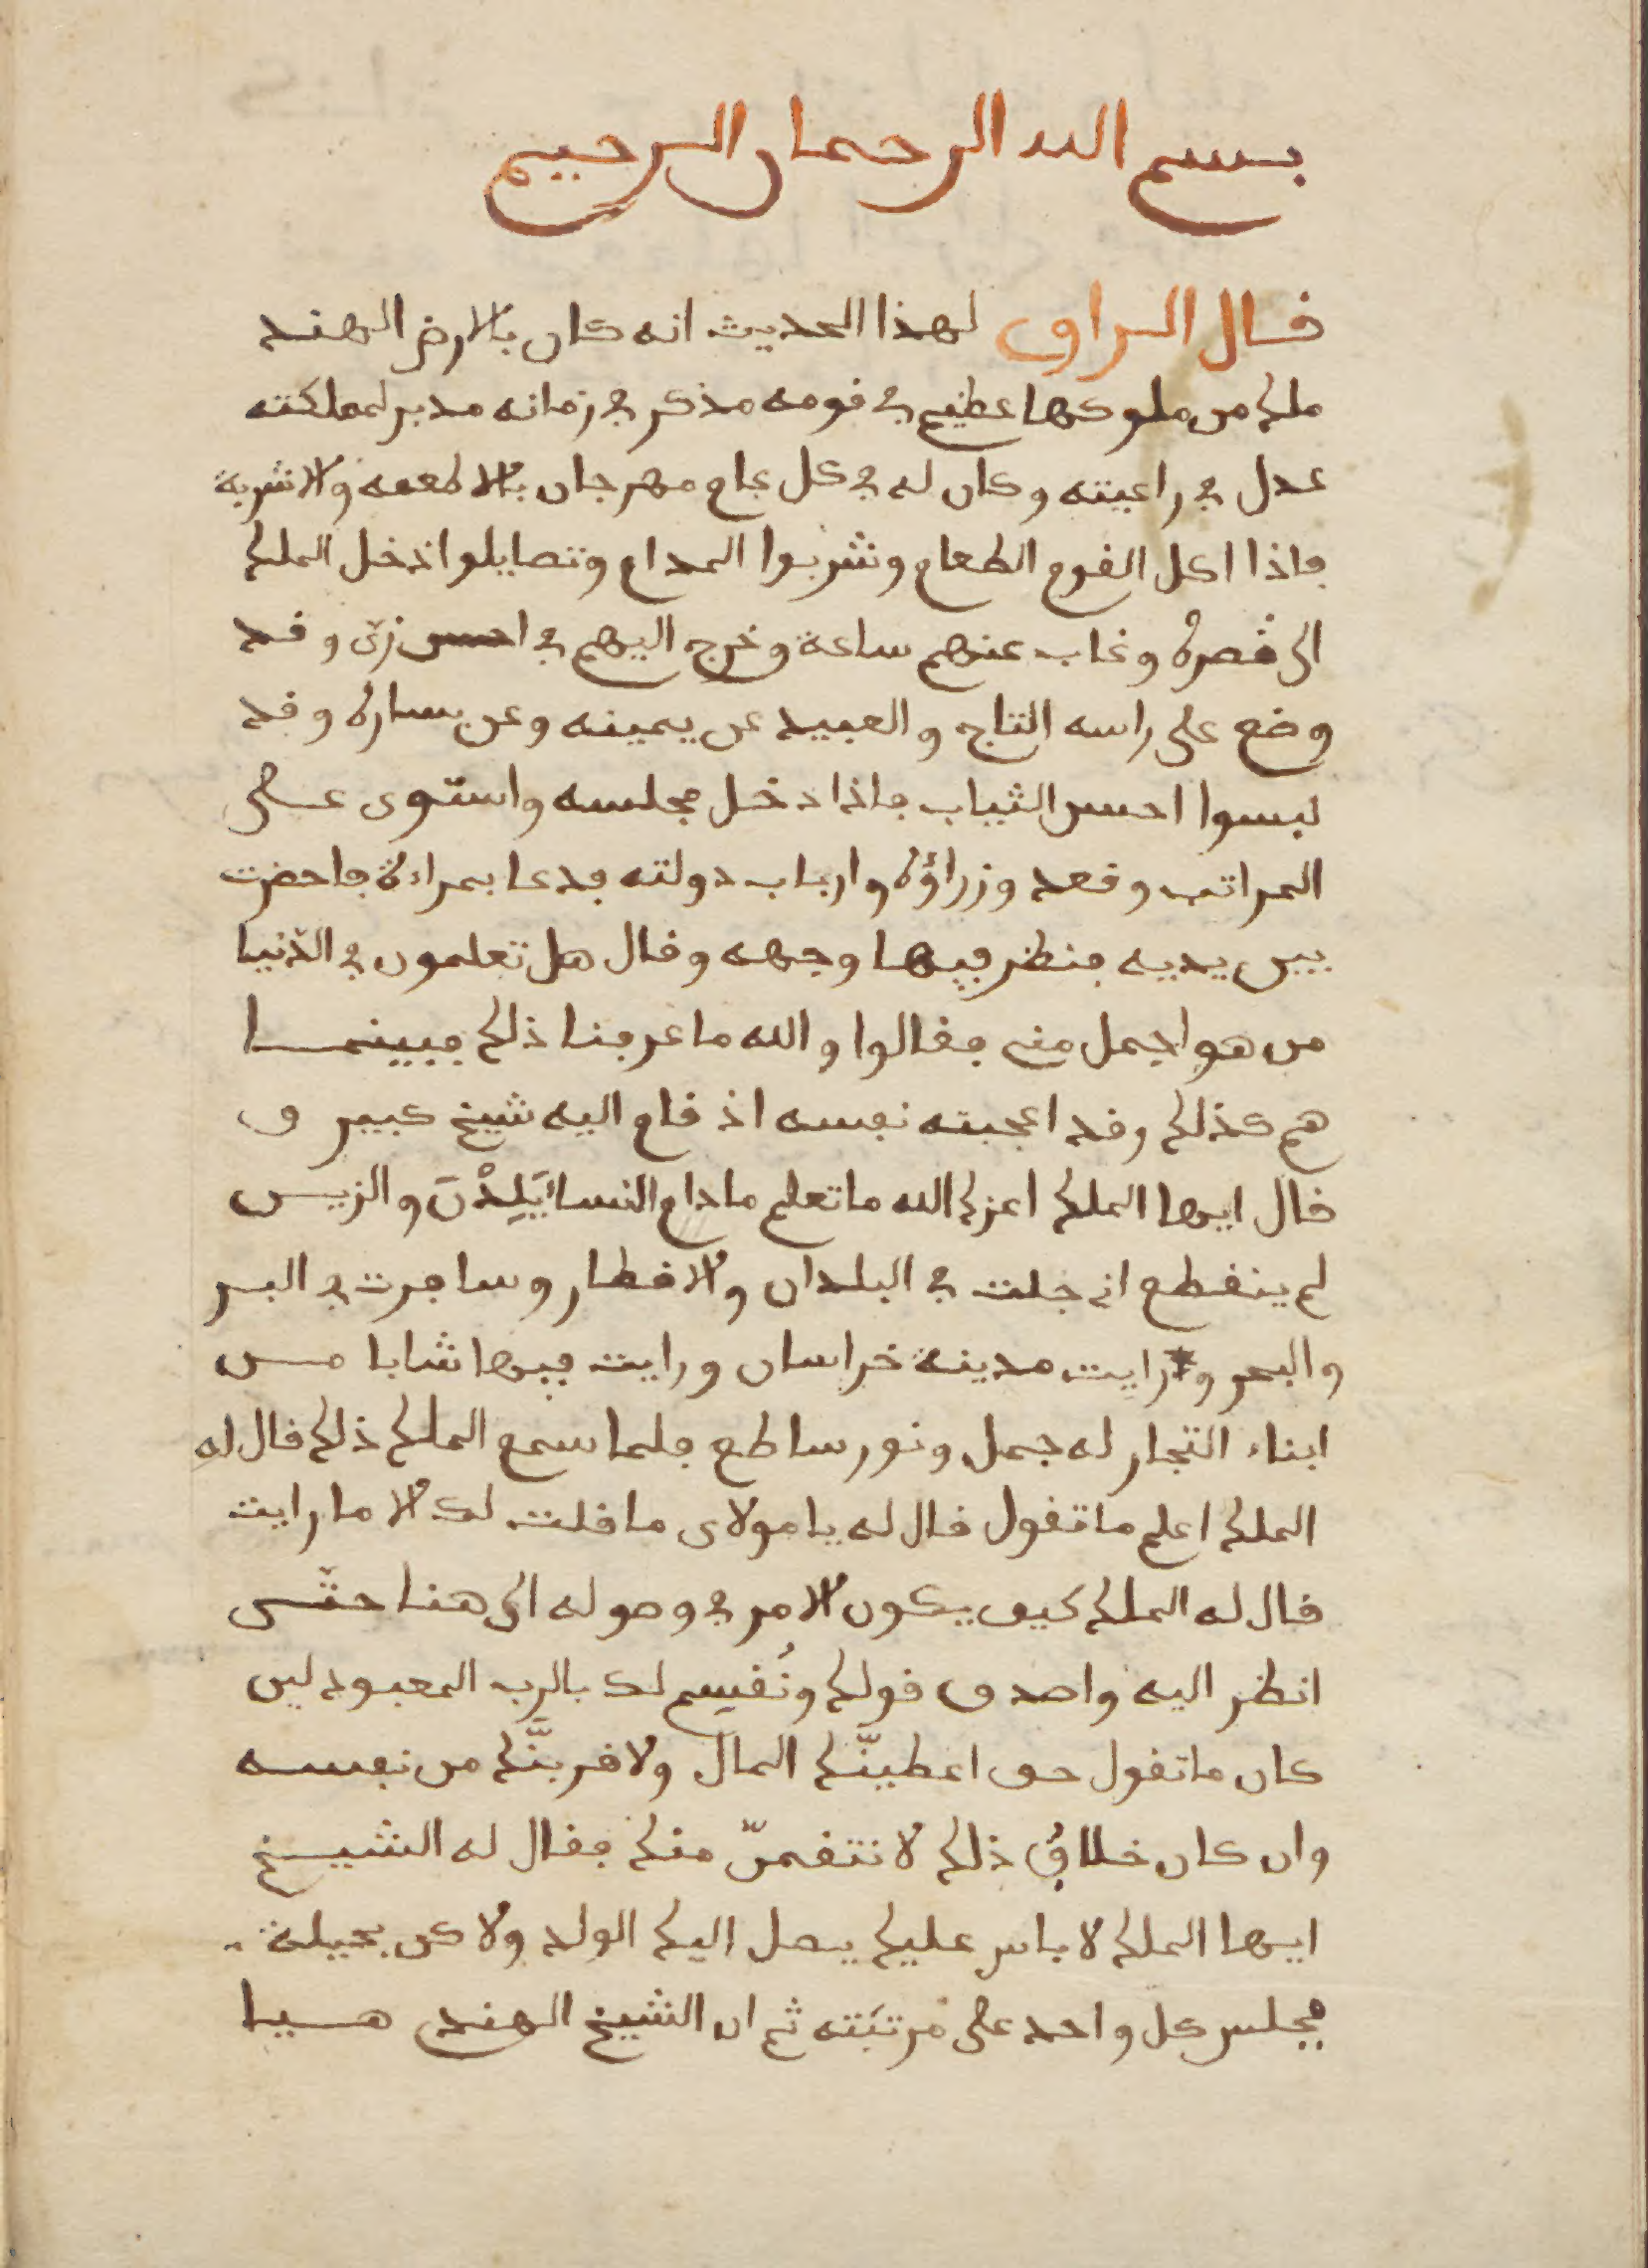 بسم الله الرحمان الرحيم
قال الراوى لهذا الحديث انه كان بالارض الهند
ملك من ملوكها عظيم في قومه مذكر في زمانه مدبر لمملكته
عدل في راعيته وكان له في كل عام مهرجان بالاطعمه والاشربة
فاذا اكل القوم الطعام وشربوا المدام وتصايلوا ادخل الملك
الى قصره وغاب عنهم ساعة وخرج اليهم في احسن زيّ وقد
وضع على راسه التاج والعبيد عن يمينه وعن يساره وقد
لبسوا احسن الثياب فاذا دخل مجلسه واستوى على
المراتب وقعد وزراؤه وارباب دولته فدعا بمراءة فاحضرت
بين يديه فنظر فيها وجهه وقال هل تعلمون في الدّنيا
من هو اجمل مني فقالوا والله ما عرفنا ذلك فبينما
هم كذلك وقد اعجبته نفسه اذ قام اليه شيخ كبير و
قال ايها الملك اعزك الله ما تعلم مادام النسا يَلِدْنَ والزين
لم ينقطع اني جلت في البلدان والاقطار وسافرت في البر
والبحر ورايت مدينة خراسان ورايت فيها شابا من
ابناء التجار له جمل ونور ساطع فلما سمع الملك ذلك قال له
الملك اعلم ما تقول قال له يا مولاى ما قلت لك الا ما رايت
قال له الملك كيف يكون الامر في وصوله الى هنا حتّى
انظر اليه واصدق قولك ونُقسِم لك بالرب المعبود لين
كان ما تقول حق اعطينّك المال ولاقربنَّك من نفسه
وان كان خلاف ذلك لانتقمنّ منك فقال له الشيخ
ايها الملك لا باس عليك يصل اليك الولد ولاكن بحيلة
فجلس كل واحد على مرتبَته ثم ان الشيخ الهندي هيا